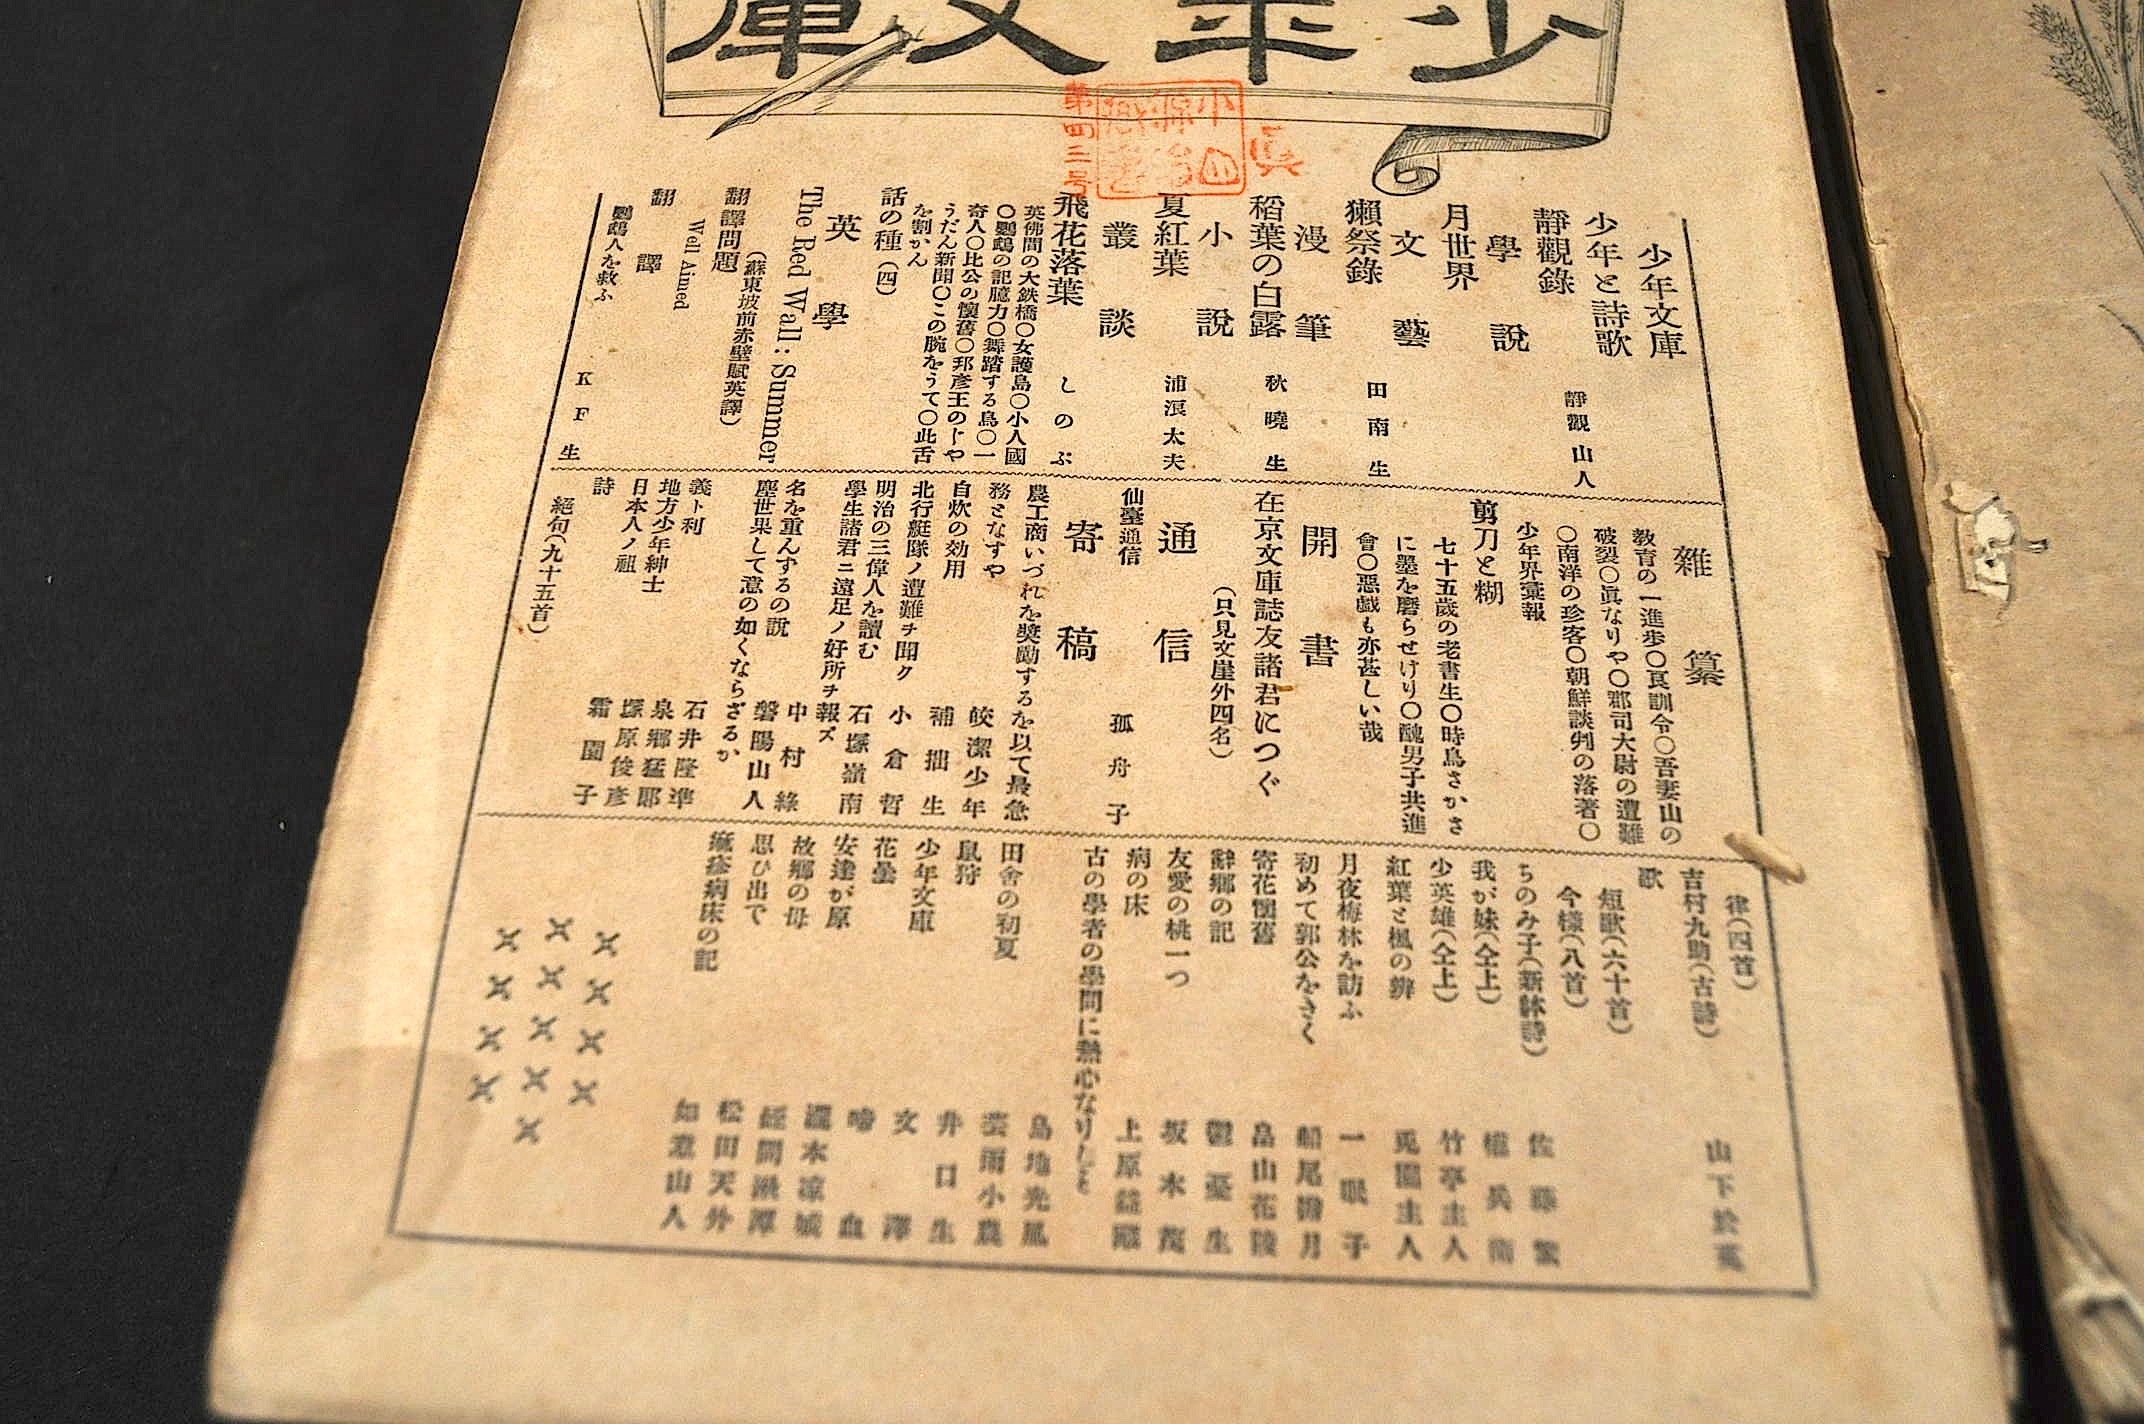 少年文庫
眞
第四三号
少年文庫
少年と詩歌
靜觀錄 靜觀山人
學說
月世界
文藝
獺祭錄 田南生
漫筆
稻葉の白露 秋曉生
小說
夏紅葉 浦浪太夫
叢談
飛花落葉 しのぶ
英佛間の大鉄橋〇女護島〇小人國
〇鸚鵡の記臆力〇舞踏する鳥〇一
寄人〇比公の懷舊〇邦彦王のトや
うだん新聞〇この腕をうて〇此舌
を割かん
話の種(四)
英學
The Red Wall: Summer
(蘇東坡前赤壁賦英譯)
翻譯問題
Well Aimed
翻譯
鸚鵡人を救ふ KF生
雜纂
敎育の一進歩〇良訓令〇吾妻山の
破裂〇眞なりや〇郡司大尉の遭難
〇南洋の珍客〇朝鮮談判の落著〇
少年界彙報
剪刀と糊
七十五歲の老書生〇時鳥さかさ
に墨を磨らせけり〇醜男子共進
會〇惡戯も亦甚しい哉
開書
在京文庫誌友諸君につぐ
(只見文崖外四名)
通信
仙臺通信 孤舟子
寄稿
農工商いづれを奬勵するを以て最急
務となすや 皎潔少年
自炊の効用 補拙生
北行艇隊ノ遭難ヲ聞ク 小倉哲
明治の三偉人を讀む 石塚嶺南
學生諸君ニ遠足ノ好所ヲ報ズ
中村綠
名を重んずるの說 磐陽山人
塵世果して意の如くならざるか
石井隆準
義ト利 泉鄕猛郎
地方少年紳士 塚原俊彥
日本人ノ祖 霜園子
詩
絕句(九十五首)
律(四首)
吉村九助(古詩) 山下於菟
歌
短歌(六十首)
今樣(八首)
ちのみ子(新躰詩) 佐藤紫
我が妹(仝上) 權兵衛
少英雄(仝上) 竹亭主人
紅葉と楓の辨 兎園主人
月夜梅林を訪ふ 一眠子
初めて郭公をきく 船尾澹月
寄花懷舊 畠山花陵
辭鄕の記 鬱憂生
友愛の桃一つ 坂木萬
病の床 上原益藏
古の學者の學問に熱心なりしを
島地光風
田舍の初夏 芸雨小農
鼠狩 井口生
少年文庫 文澤
花曇 啼血
安達が原 瀧木凉城
故鄕の母
思ひ出で 松田天外
痲疹病床の記 如意山人